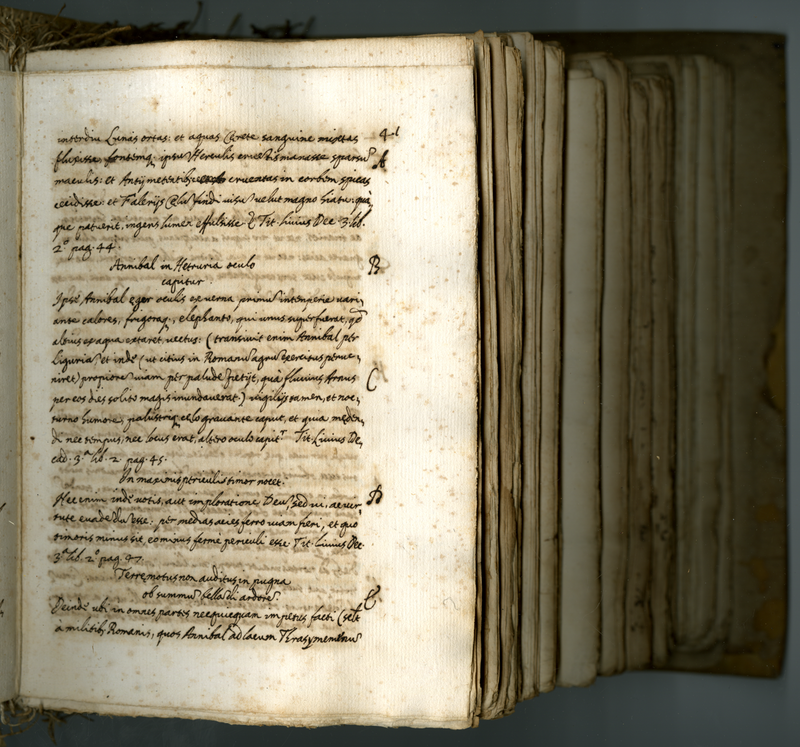 interdiu Lunas ortas: et aquas Cærete sanguine mixtas 41
fluxisse, fontemq. ipsū Herculis cruentis manasse sparsū A
maculis: et Antij metentibus cruentas in corbem spicas
cecidisse: et Falerijs Cœlū findi visū velut magno hiatu; quà
que patuerit, ingens lumen effulsisse &. Tit. Livius Dec. 3. lib.
2.º pag. 44.
Annibal in Hetruria oculo B
capitur.
Ipse Annibal æger oculis ex verna primū intemperie vari,
ante calores, frigoraq., elephanto, qui unus superfuerat, qd
altius ex aqua extaret, vectus: (transivit enim Annibal per
Liguriā et inde (ut citius in Romanū agrū exercitus perve,
niret) propiorē viam per palude petijt, quà fluvius Arnus C
per eos dies solito magis inundaverat.) vigilijs tamen, et noc,
turno humore, palustriq. cœlo gravante caput, et quia meden,
di nec tempus, nec locus erat, altero oculo capitr. Tit. Livius De,
cad. 3.ª lib. 2. pag. 45.
In maximis periculis timor nocet.
Nec enim inde votis, aut imploratione Deū, sed vi, ac vir, D
tute evadēdū esse: per medias acies ferro viam fieri, et quo
timoris minus sit, eo minus ferme periculi esse. Tit. Livius Dec.
3.ª lib. 2.º pag. 47.
Terremotus non auditus in pugna
ob summū bellādi ardorē. E
Deinde ubi in omnes partes nequicquam impetus facti (scilt
a militib. Romanis, quos Annibal ad lacum Thrasymenenū